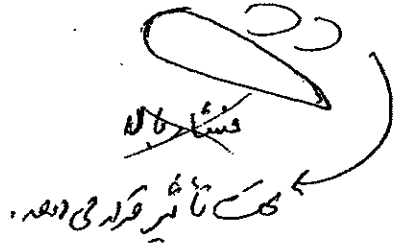 فشار بالا
تحت تأثیر قرار می دهد.